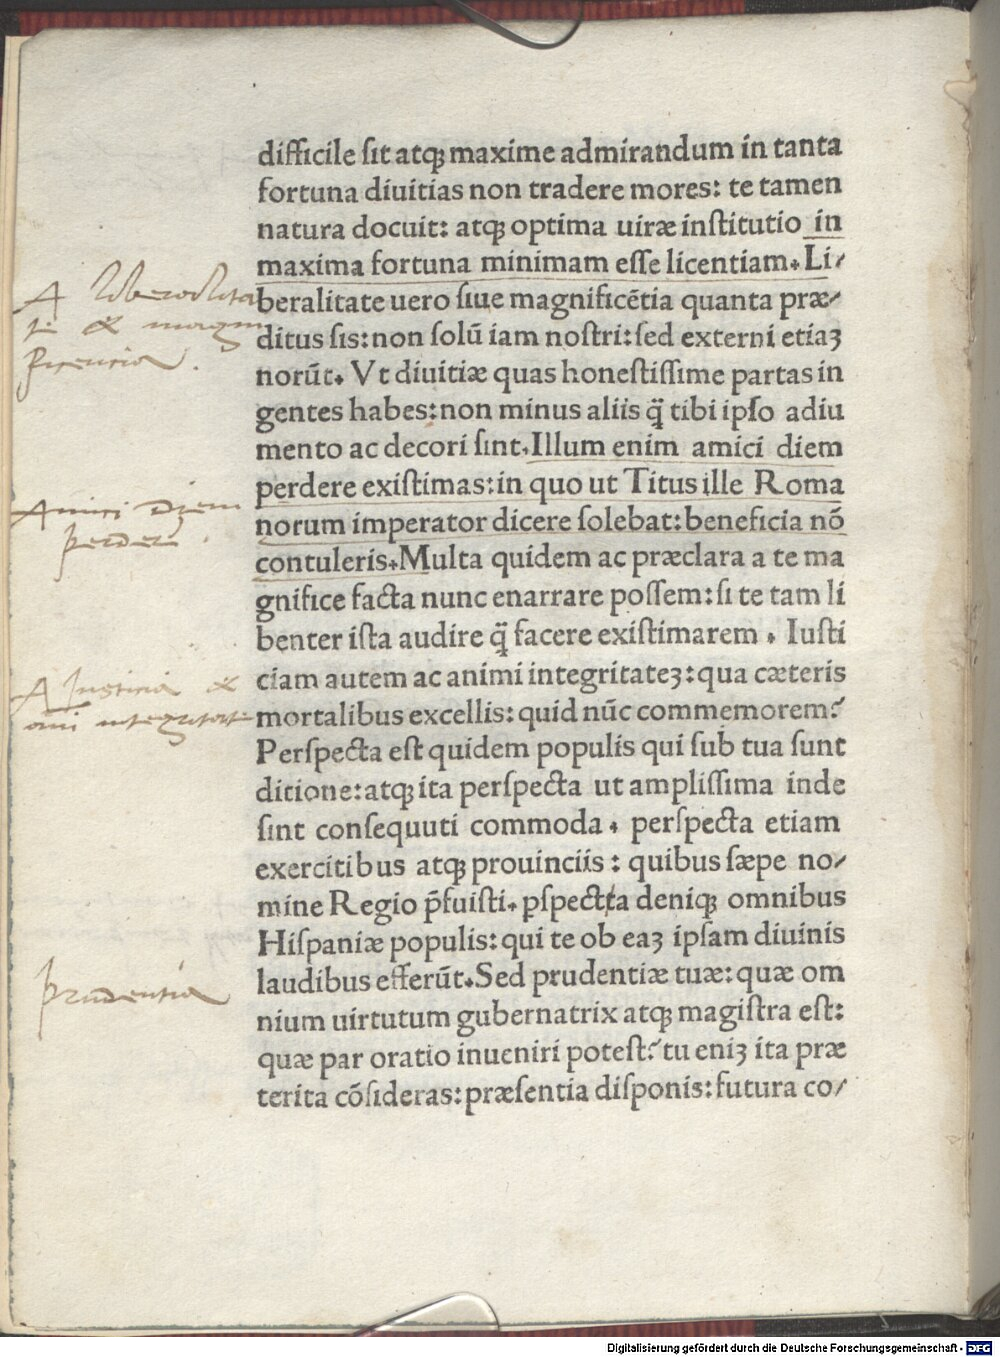 difficile ſit atqꝫ maxime admirandum in tanta
fortuna diuitias non tradere mores: te tamen
natura docuit: atqꝫ optima uiræ inſtitutio in
maxima fortuna minimam eſſe licentiam. Li/
beralitate uero ſiue magnificētia quanta præ/
ditus sis: non ſolū iam noſtri: ſed externi etiaꝫ
norūt. Vt diuitiæ quas honeſtiſſime partas in
gentes habes: non minus aliis q̄ tibi ipſo adiu
mento ac decori ſint. Illum enim amici diem
perdere exiſtimas: in quo ut Titus ille Roma
norum imperator dicere ſolebat: beneficia nō
contuleris. Multa quidem ac præclara a te ma
gnifice facta nunc enarrare poſſem: ſi te tam li
benter iſta audire q̄ facere exiſtimarem. Iuſti
ciam autem ac animi integritateꝫ: qua cæteris
mortalibus excellis: quid nūc commemorem?
Perſpecta eſt quidem populis qui ſub tua ſunt
ditione: atqꝫ ita perſpecta ut ampliſſima inde
ſint conſequuti commoda. perſpecta etiam
exercitibus atqꝫ prouinciis: quibus ſæpe no/
mine Regio p̄fuiſti. pſpectta deniqꝫ omnibus
Hiſpaniæ populis: qui te ob eaꝫ ipſam diuinis
laudibus efferūt. Sed prudentiæ tuæ: quæ om
nium uirtutum gubernatrix atqꝫ magiſtra eſt:
quæ par oratio inueniri poteſt? tu eniꝫ ita præ
terita cōſideras: præſentia diſponis: futura co/
A liberalita
te & magni
ficencia.
Amici Diem
perdere.
A Iusticia &
animi integritate
prudentia
Digitalisierung gefördert durch die Deutsche Forschungsgemeinschaft - DFG